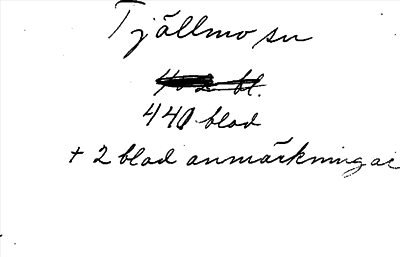 Tjällmo sn
bl.
441 blad
+ 2 blad anmärkningar